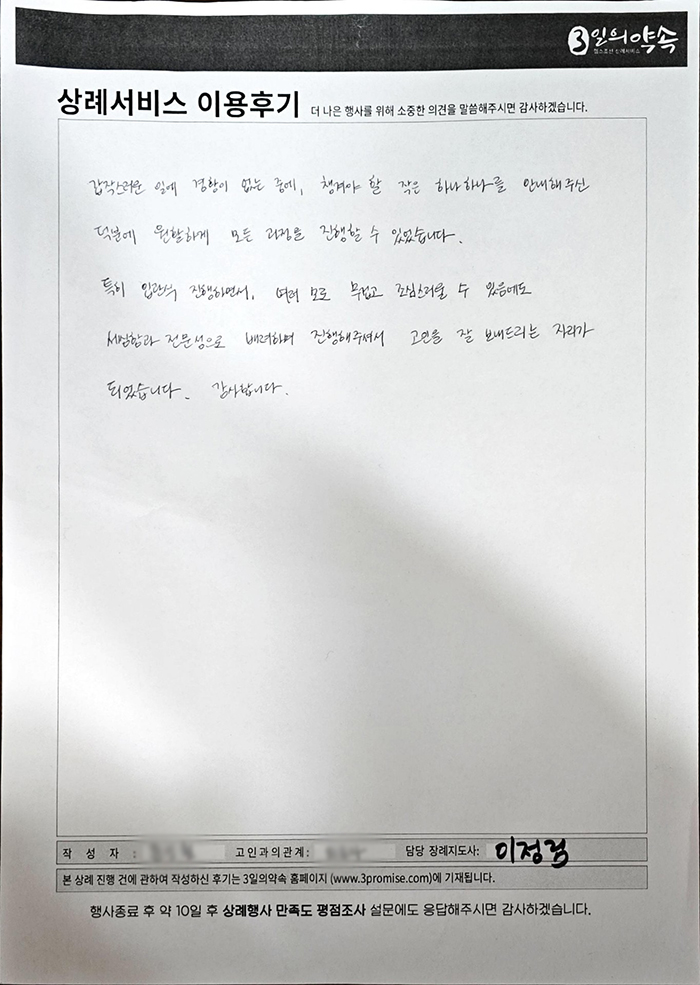 3일의약속
헬스조선 상례서비스
상례서비스 이용후기 더 나은 행사를 위해 소중한 의견을 말씀해주시면 감사하겠습니다.
갑작스러운 일에 경황이 없는 중에, 챙겨야 할 작은 하나하나를 안내해주신
덕분에 원활하게 모든 과정을 진행할 수 있었습니다.
특히 입관식 진행하면서, 여러 모로 무겁고 조심스러울 수 있음에도
세심함과 전문성으로 배려하며 진행해주셔서 고인을 잘 보내드리는 자리가
되었습니다. 감사합니다.
작 성 자 : 고인과의관계: 담당 장례지도사:
본 상례 진행 건에 관하여 작성하신 후기는 3일의약속 홈페이지 (www.3promise.com)에 기재됩니다.
행사종료 후 약 10일 후 상례행사 만족도 평점조사 설문에도 응답해주시면 감사하겠습니다.